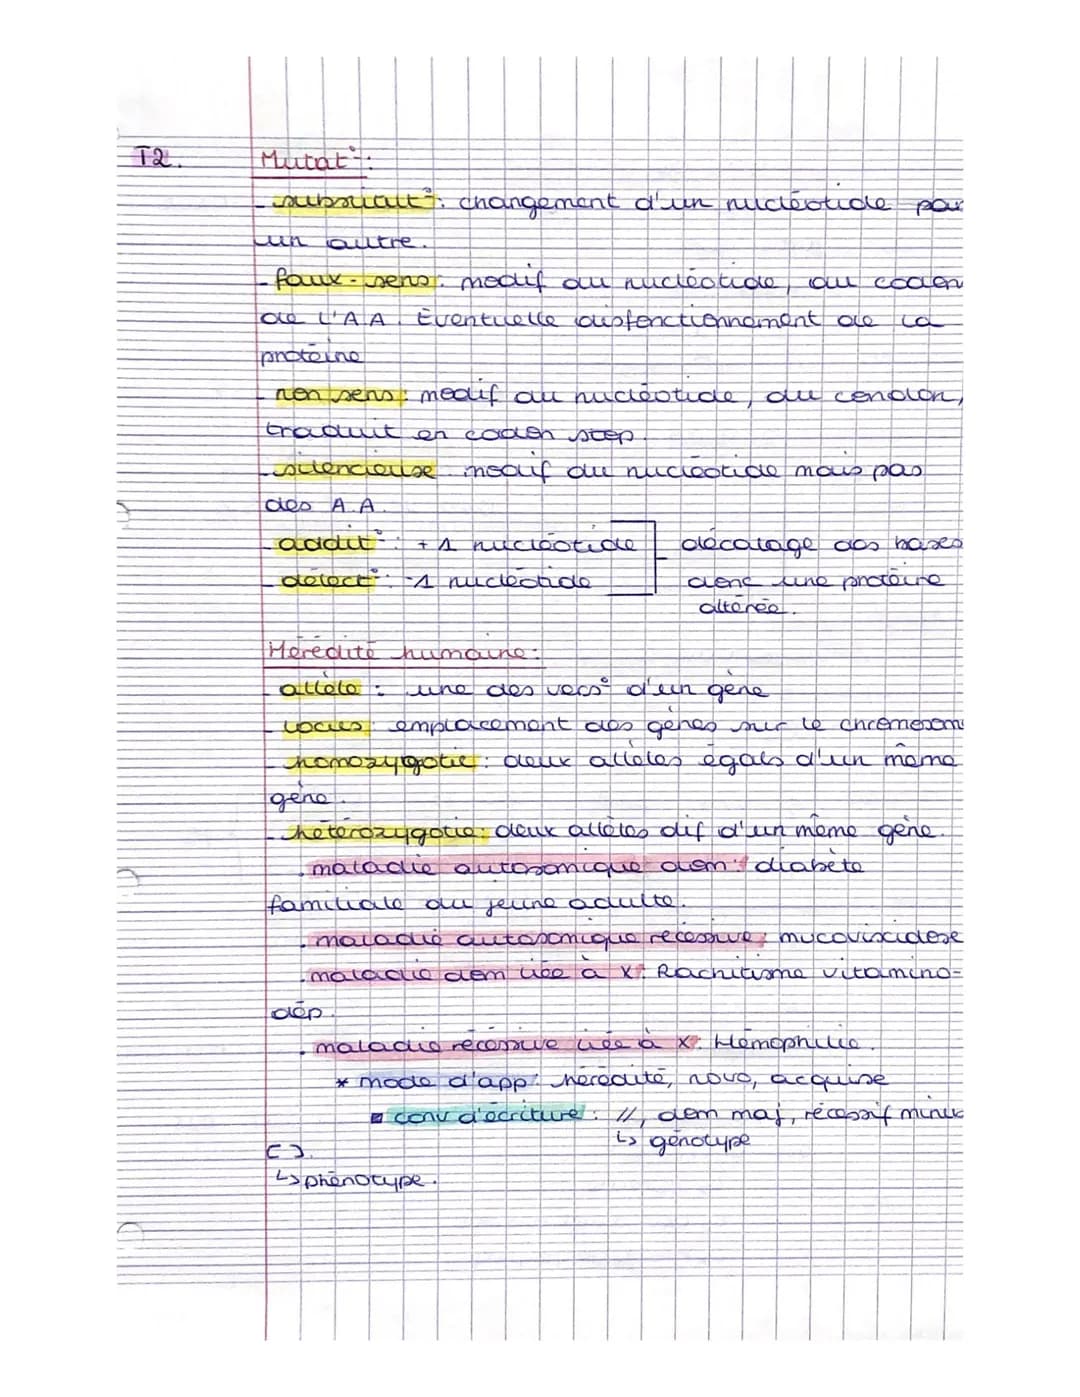 T2. Mutat°:
- substitut°: changement d'un nucléotide par
un autre.
- faux-sens: modif du nucléotide, du codon
de l'A.A. Eventuelle disfonctionnement de la
protéine
- non sens: modif du nucléotide, du condon,
traduit en codon stop.
- silencieuse modif du nucléotide mais pas
des A.A.
- addit°: +1 nucléotide décalage des bases
- délect°: -1 nucléotide donc une protéine
altérée.
Hérédité humaine:
- allèle : une des vers° d'un gène
- locus: emplacement des gènes sur le chromosom
- homozygotie: deux allèles égals d'un même
gène.
- hétérozygotie: deux allèles dif d'un même gène.
. maladie autosomique dom: diabète
familiale du jeune adulte.
. maladie autosomique récessive: mucoviscidose
. maladie dom liée à X: Rachitisme vitamino-
dép.
. maladie récessive liée à X: Hémophilie.
* mode d'app: hérédité, novo, acquise
▪ conv d'écriture: //, dom maj, récessif minus
↳ génotype
[ ].
↳ phénotype.